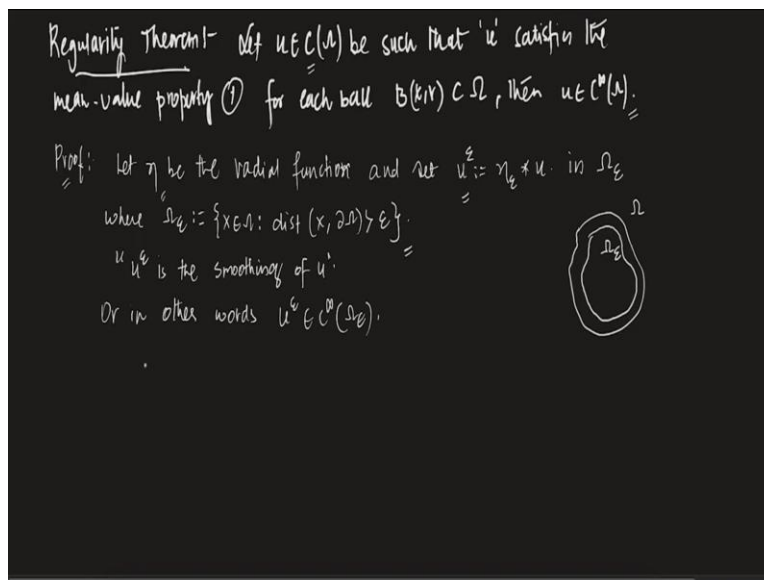 Regularity Theorem:- Let u ∈ C(Ω) be such that 'u' satisfies the
mean-value property ① for each ball B(x,r) ⊂ Ω, then u ∈ C^∞(Ω).
Proof: Let η be the radial function and set u^ε := η_ε * u in Ω_ε
where Ω_ε := {x∈Ω : dist (x, ∂Ω) > ε}.
Ω
Ω_ε
"u^ε is the smoothing of u".
Or in other words u^ε ∈ C^∞(Ω_ε).